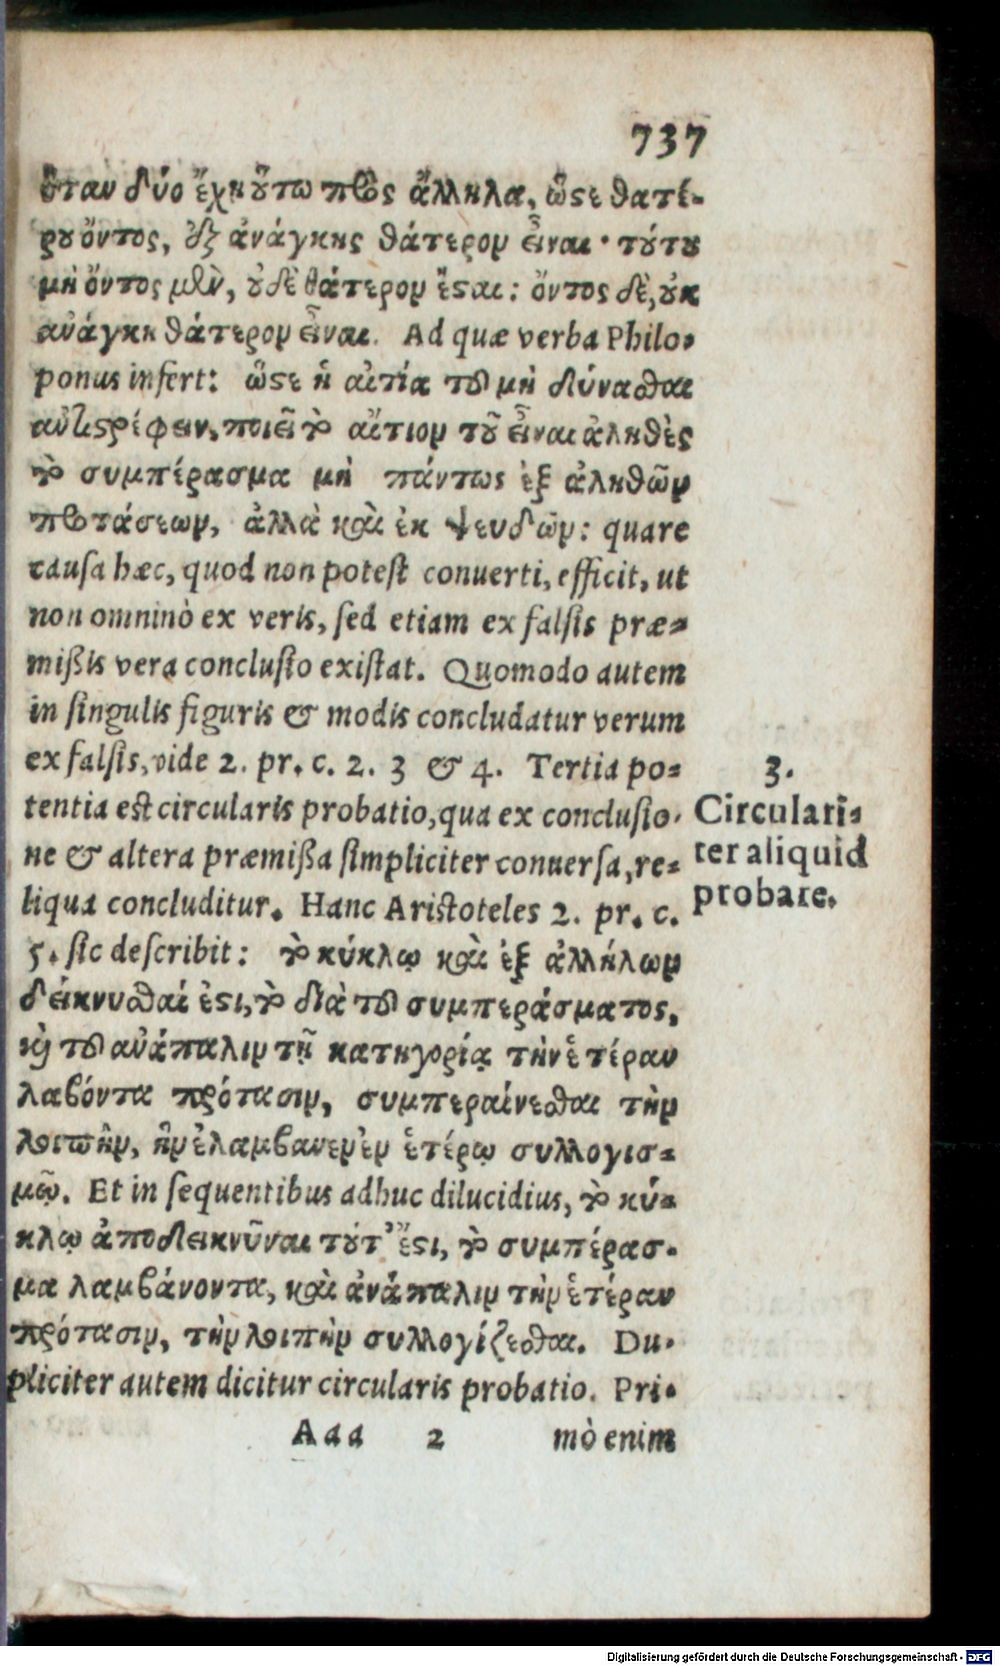 737
ὅταν δύο ἔχῃ οὕτω πρὸς ἄλληλα, ὥστε θατέ-
ρου ὄντος, ἐξ ἀνάγκης θάτερον εἶναι· τούτου
μὴ ὄντος μὲν, οὐδὲ θάτερον ἔσται: ὄντος δὲ, οὐκ
ἀνάγκη θάτερον εἶναι. Ad quæ verba Philo-
ponus infert: ὥστε ἡ αἰτία τοῦ μὴ δύνασθαι
ἀντιστρέφειν, ποιεῖ τὸ αἴτιον τοῦ εἶναι ἀληθὲς
τὸ συμπέρασμα μὴ πάντως ἐξ ἀληθῶν
προτάσεων, ἀλλὰ καὶ ἐκ ψευδῶν: quare
causa hæc, quod non potest conuerti, efficit, ut
non omninò ex veris, sed etiam ex falsis præ-
mißis vera conclusio existat. Quomodo autem
in singulis figuris & modis concludatur verum
ex falsis, vide 2. pr. c. 2. 3 & 4. Tertia po-
tentia est circularis probatio, qua ex conclusio-
ne & altera præmißa simpliciter conuersa, re-
liqua concluditur. Hanc Aristoteles 2. pr. c.
5. sic describit: τὸ κύκλῳ καὶ ἐξ ἀλλήλων
δείκνυσθαί ἐστι, τὸ διὰ τοῦ συμπεράσματος,
καὶ τοῦ ἀνάπαλιν τῇ κατηγορίᾳ τὴν ἑτέραν
λαβόντα πρότασιν, συμπεραίνεσθαι τὴν
λοιπὴν, ἣν ἐλάμβανεν ἐν ἑτέρῳ συλλογισ-
μῷ. Et in sequentibus adhuc dilucidius, τὸ κύ-
κλῳ ἀποδεικνῦναι τούτ' ἔστι, τὸ συμπέρασ-
μα λαμβάνοντα, καὶ ἀνάπαλιν τὴν ἑτέραν
πρότασιν, τὴν λοιπὴν συλλογίζεσθαι. Du-
pliciter autem dicitur circularis probatio. Pri-
3.
Circulari-
ter aliquid
probare.
Aaa 2 mò enim
Digitalisierung gefördert durch die Deutsche Forschungsgemeinschaft - DFG